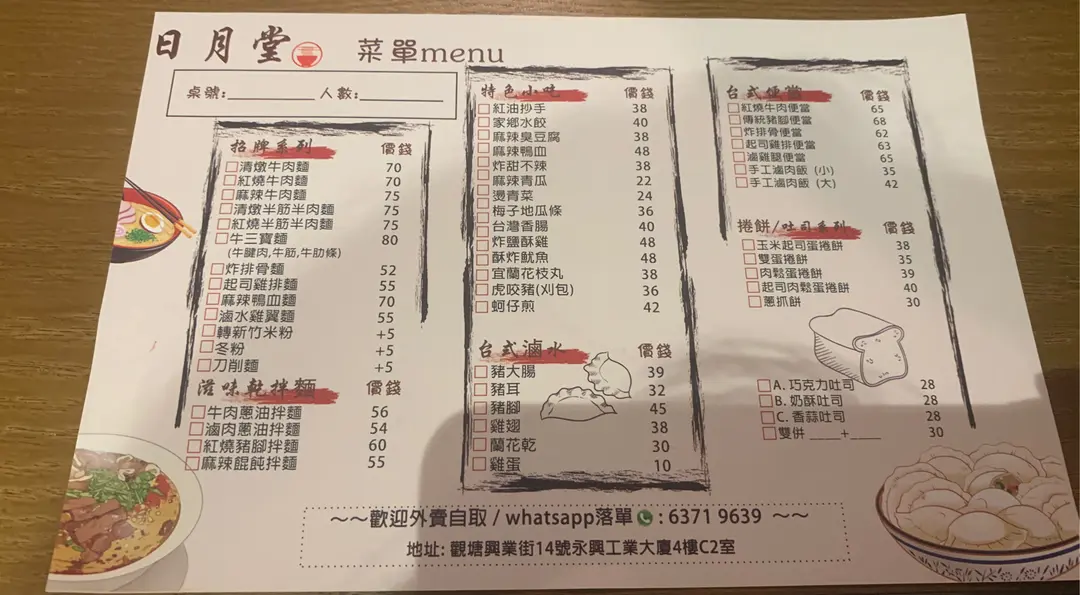 日月堂
菜單menu
桌號:________ 人數:________
招牌系列 價錢
清燉牛肉麵 70
紅燒牛肉麵 70
麻辣牛肉麵 75
清燉半筋半肉麵 75
紅燒半筋半肉麵 75
牛三寶麵 80
(牛腱肉,牛筋,牛肋條)
炸排骨麵 52
起司雞排麵 55
麻辣鴨血麵 70
滷水雞翼麵 55
轉新竹米粉 +5
冬粉 +5
刀削麵 +5
滋味乾拌麵 價錢
牛肉蔥油拌麵 56
滷肉蔥油拌麵 54
紅燒豬腳拌麵 60
麻辣餛飩拌麵 55
特色小吃 價錢
紅油抄手 38
家鄉水餃 40
麻辣臭豆腐 38
麻辣鴨血 48
炸甜不辣 38
麻辣青瓜 22
燙青菜 24
梅子地瓜條 36
台灣香腸 40
炸鹽酥雞 48
酥炸魷魚 48
宜蘭花枝丸 38
虎咬豬(刈包) 36
蚵仔煎 42
台式滷水 價錢
豬大腸 39
豬耳 32
豬腳 45
雞翅 38
蘭花乾 30
雞蛋 10
台式便當 價錢
紅燒牛肉便當 65
傳統豬腳便當 68
炸排骨便當 62
起司雞排便當 63
滷雞腿便當 65
手工滷肉飯 (小) 35
手工滷肉飯 (大) 42
捲餅/吐司系列 價錢
玉米起司蛋捲餅 38
雙蛋捲餅 35
肉鬆蛋捲餅 39
起司肉鬆蛋捲餅 40
蔥抓餅 30
A. 巧克力吐司 28
B. 奶酥吐司 28
C. 香蒜吐司 28
雙併 ____+____ 30
～～歡迎外賣自取 / whatsapp落單 : 6371 9639 ～～
地址: 觀塘興業街14號永興工業大廈4樓C2室